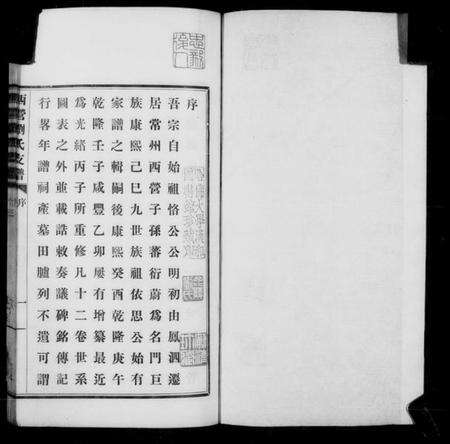 序
吾宗自始祖恪公公明初由鳳泗遷
居常州西營子孫蕃衍蔚爲名門巨
族康熙己巳九世族祖依思公始有
家譜之輯嗣後康熙癸酉乾隆庚午
乾隆壬子咸豐乙卯屢有增纂最近
爲光緒丙子所重修凡十二卷世系
圖表之外並載誥敕奏議碑銘傳記
行畧年譜祠產墓田臚列不遺可謂
西營劉氏支譜 序
一